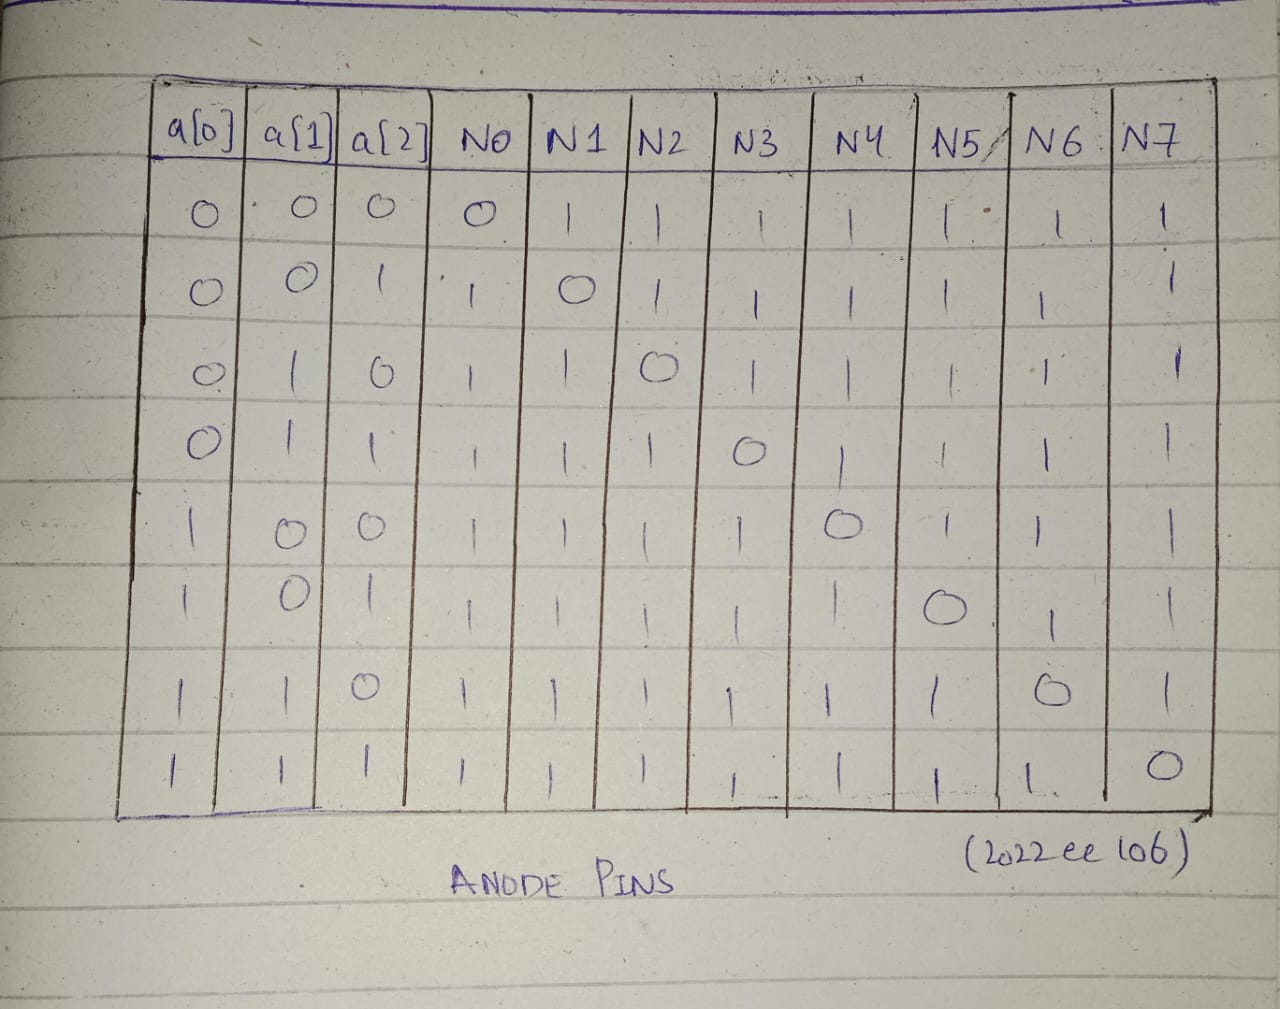 a[0] a[1] a[2] N0 N1 N2 N3 N4 N5 N6 N7
0 0 0 0 1 1 1 1 1 1 1
0 0 1 1 0 1 1 1 1 1 1
0 1 0 1 1 0 1 1 1 1 1
0 1 1 1 1 1 0 1 1 1 1
1 0 0 1 1 1 1 0 1 1 1
1 0 1 1 1 1 1 1 0 1 1
1 1 0 1 1 1 1 1 1 0 1
1 1 1 1 1 1 1 1 1 1 0
(2022 ee 106)
ANODE PINS